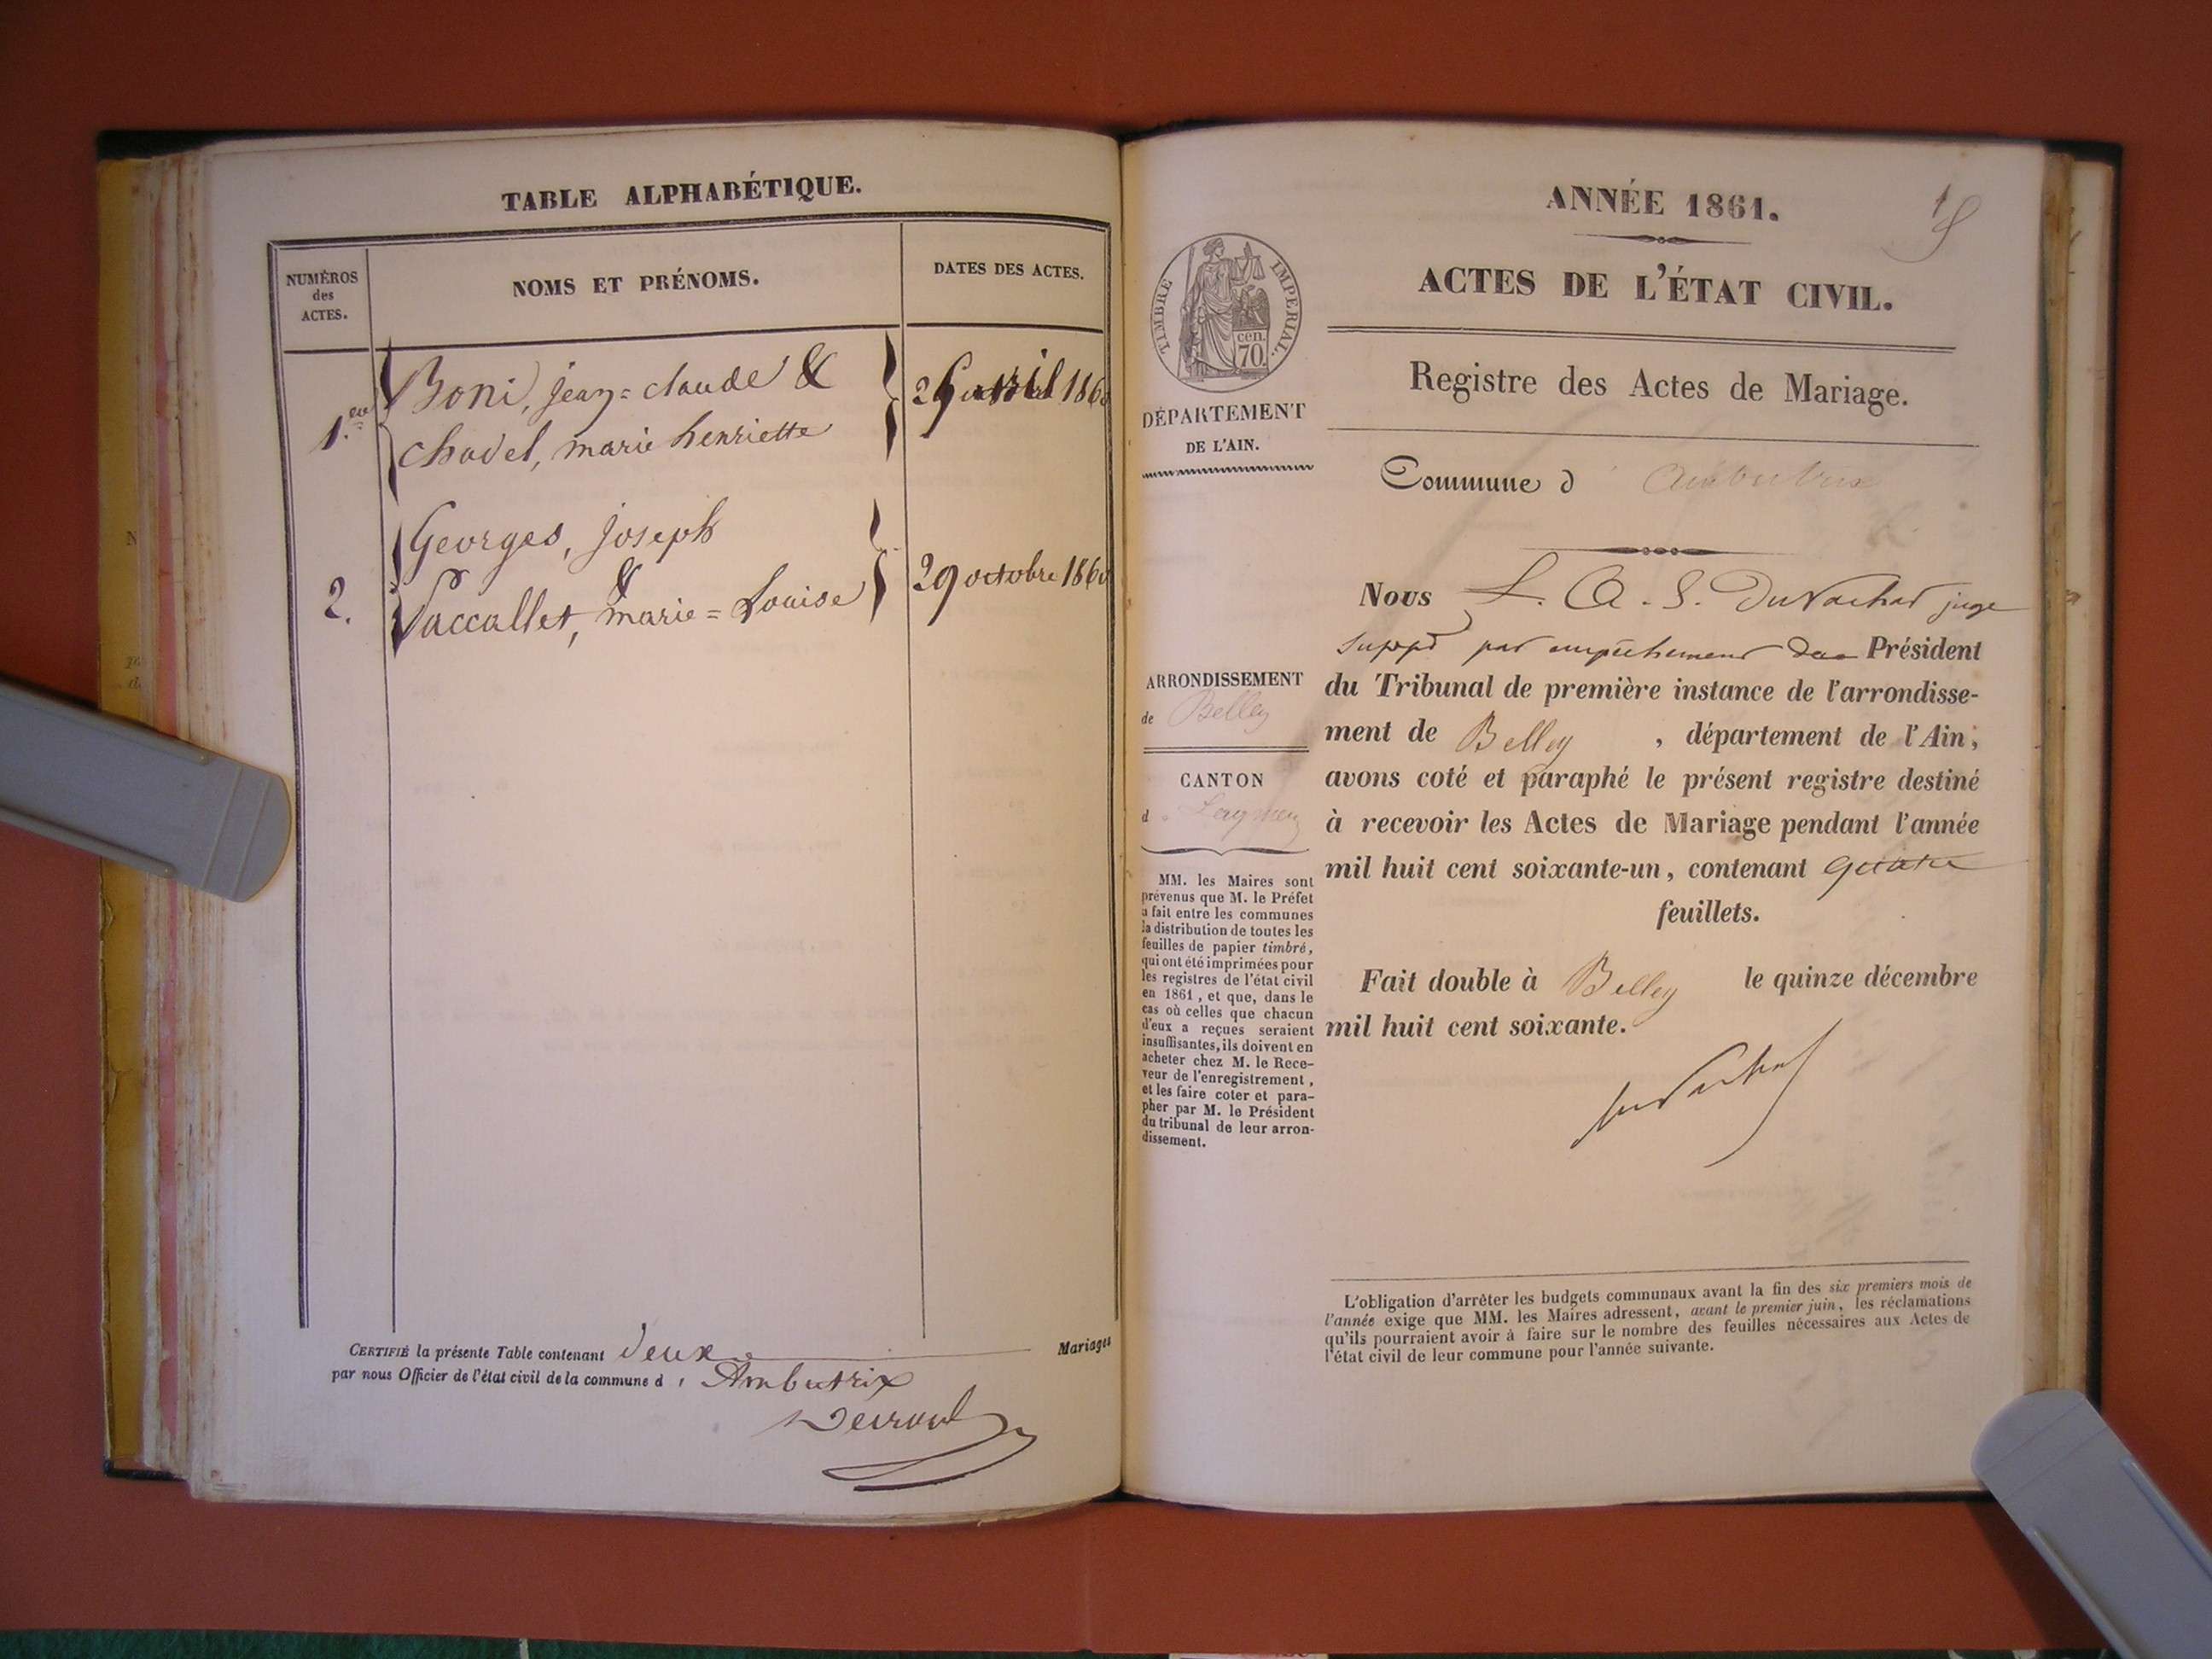 TABLE ALPHABÉTIQUE.
NUMÉROS
des
ACTES.
NOMS ET PRÉNOMS.
DATES DES ACTES.
1.er
Boni, jean=claude &
chavel, marie henriette
avril 1860
Georges, joseph
&
2.
Vaccallet, marie=Louise
29 octobre 1860
CERTIFIÉ la présente Table contenant deux Mariages
par nous Officier de l'état civil de la commune d' Ambutrix
ANNÉE 1861.
ACTES DE L'ÉTAT CIVIL.
TIMBRE IMPERIAL.
cen.
70.
DÉPARTEMENT
DE L'AIN.
Registre des Actes de Mariage.
Commune d' Ambutrix
ARRONDISSEMENT
de Belley
CANTON
d Lagnieu
MM. les Maires sont
prévenus que M. le Préfet
a fait entre les communes
la distribution de toutes les
feuilles de papier timbré,
qui ont été imprimées pour
les registres de l'état civil
en 1861, et que, dans le
cas où celles que chacun
d'eux a reçues seraient
insuffisantes, ils doivent en
acheter chez M. le Rece-
veur de l'enregistrement,
et les faire coter et para-
pher par M. le Président
du tribunal de leur arron-
dissement.
Nous L. A. S. Duvachat juge
suppt par empêchement du Président
du Tribunal de première instance de l'arrondisse-
ment de Belley, département de l'Ain;
avons coté et paraphé le présent registre destiné
à recevoir les Actes de Mariage pendant l'année
mil huit cent soixante-un, contenant quatre
feuillets.
Fait double à Belley le quinze décembre
mil huit cent soixante.
Duvachat
L'obligation d'arrêter les budgets communaux avant la fin des six premiers mois de
l'année exige que MM. les Maires adressent, avant le premier juin, les réclamations
qu'ils pourraient avoir à faire sur le nombre des feuilles nécessaires aux Actes de
l'état civil de leur commune pour l'année suivante.